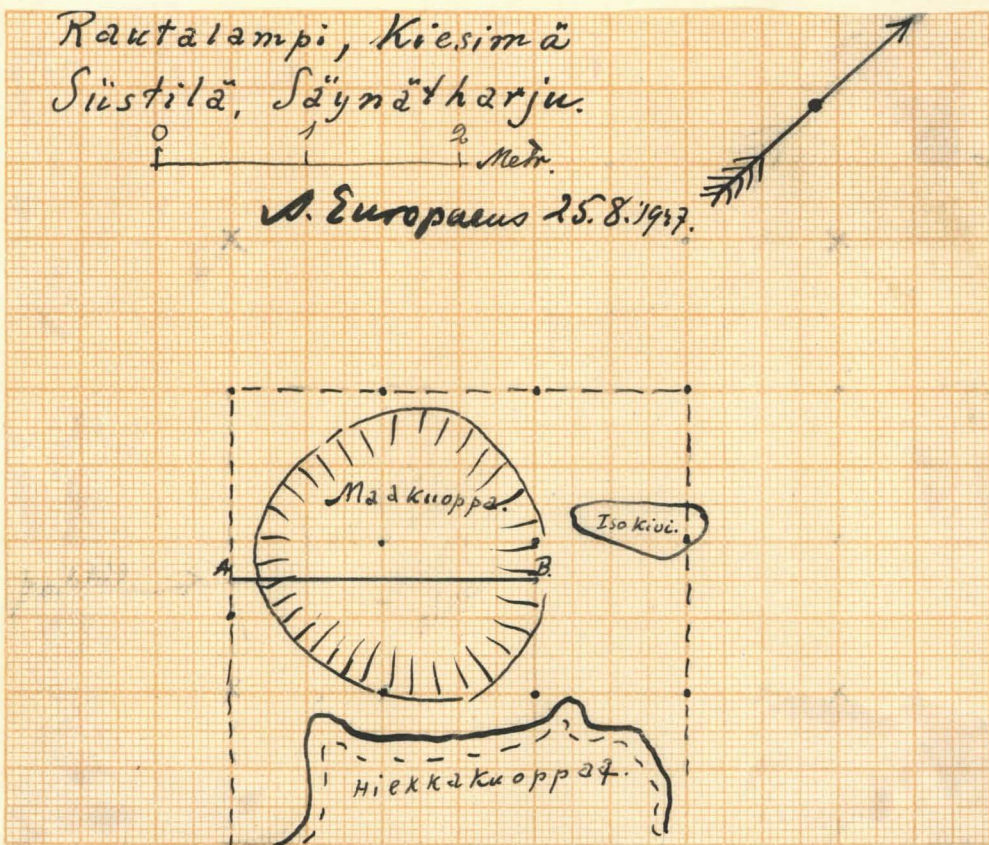 Rautalampi, Kiesimä
Siistilä, Säynätharju.
0 1 2 Metr.
A. Europaeus 25.8.1947.
Maakuoppa.
Iso kivi.
A B.
Hiekkakuoppaa.